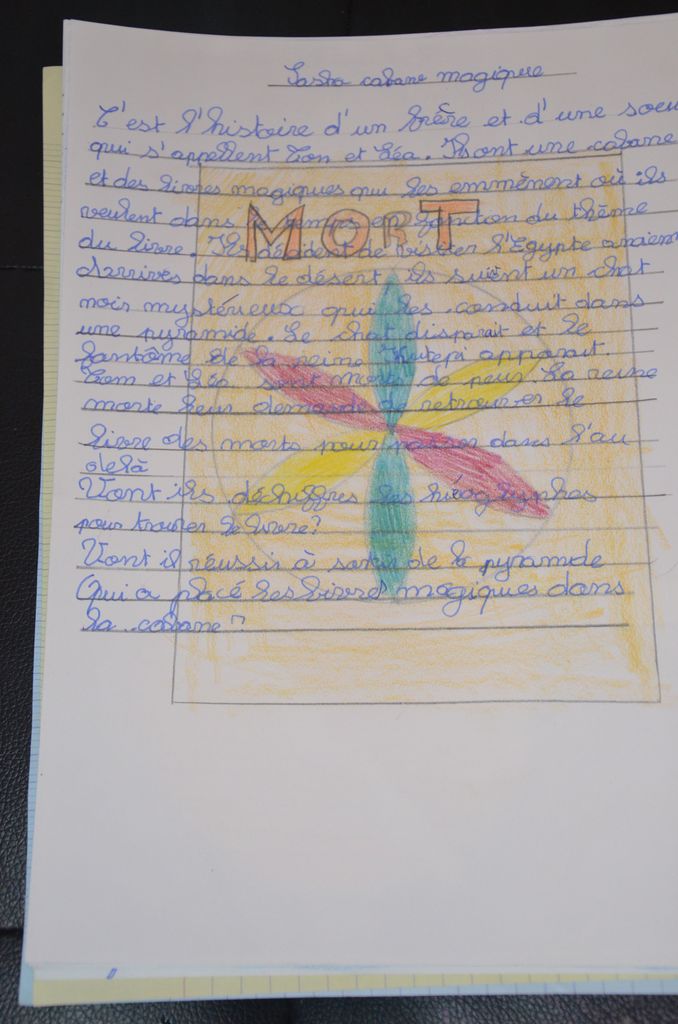 La cabane magique
C'est l'histoire d'un frère et d'une soeu
qui s'appellent Tom et Léa. Ils ont une cabane
et des livres magiques qui les emmènent où ils
veulent dans le temps en fonction du thème
du livre. Ils décident de visiter l'Egypte ancienn
Arrivés dans le désert ils suivent un chat
noir mystérieux qui les conduit dans
une pyramide. Le chat disparait et le
fantôme de la reine Hutepi apparait.
Tom et Léa sont morts de peur. La reine
morte leur demande de retrouver le
livre des morts pour passer dans l'au
delà
Vont ils déchiffres les hiéoglyphes
pour trouver le livre?
Vont il réussir à sortir de la pyramide
Qui a placé les livres magiques dans
la cabane?
MORT